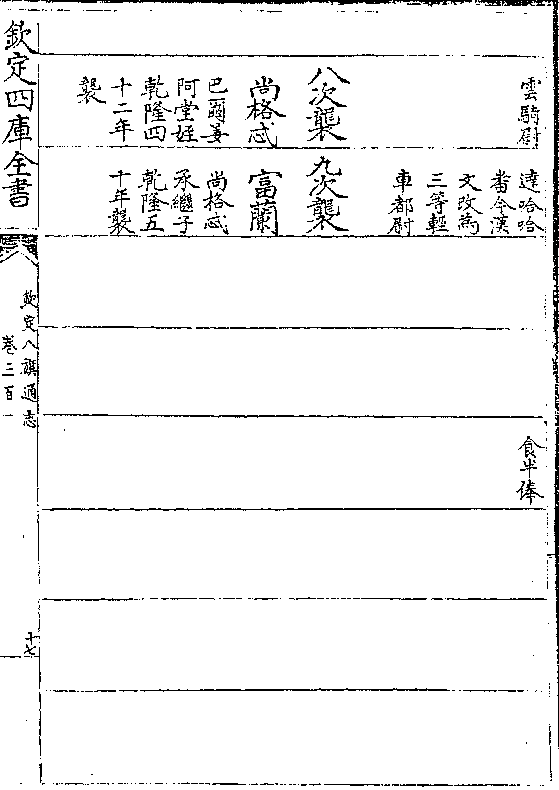 雲騎尉
八次襲
尚格忒
巴爾姜
阿堂姪
乾隆四
十二年
襲
達哈哈
番今漢
文改為
三等輕
車都尉
九次襲
富蘭
尚格忒
承繼子
乾隆五
十年襲
食半俸
欽定四庫全書
欽定八旗通志
卷三百一
十七